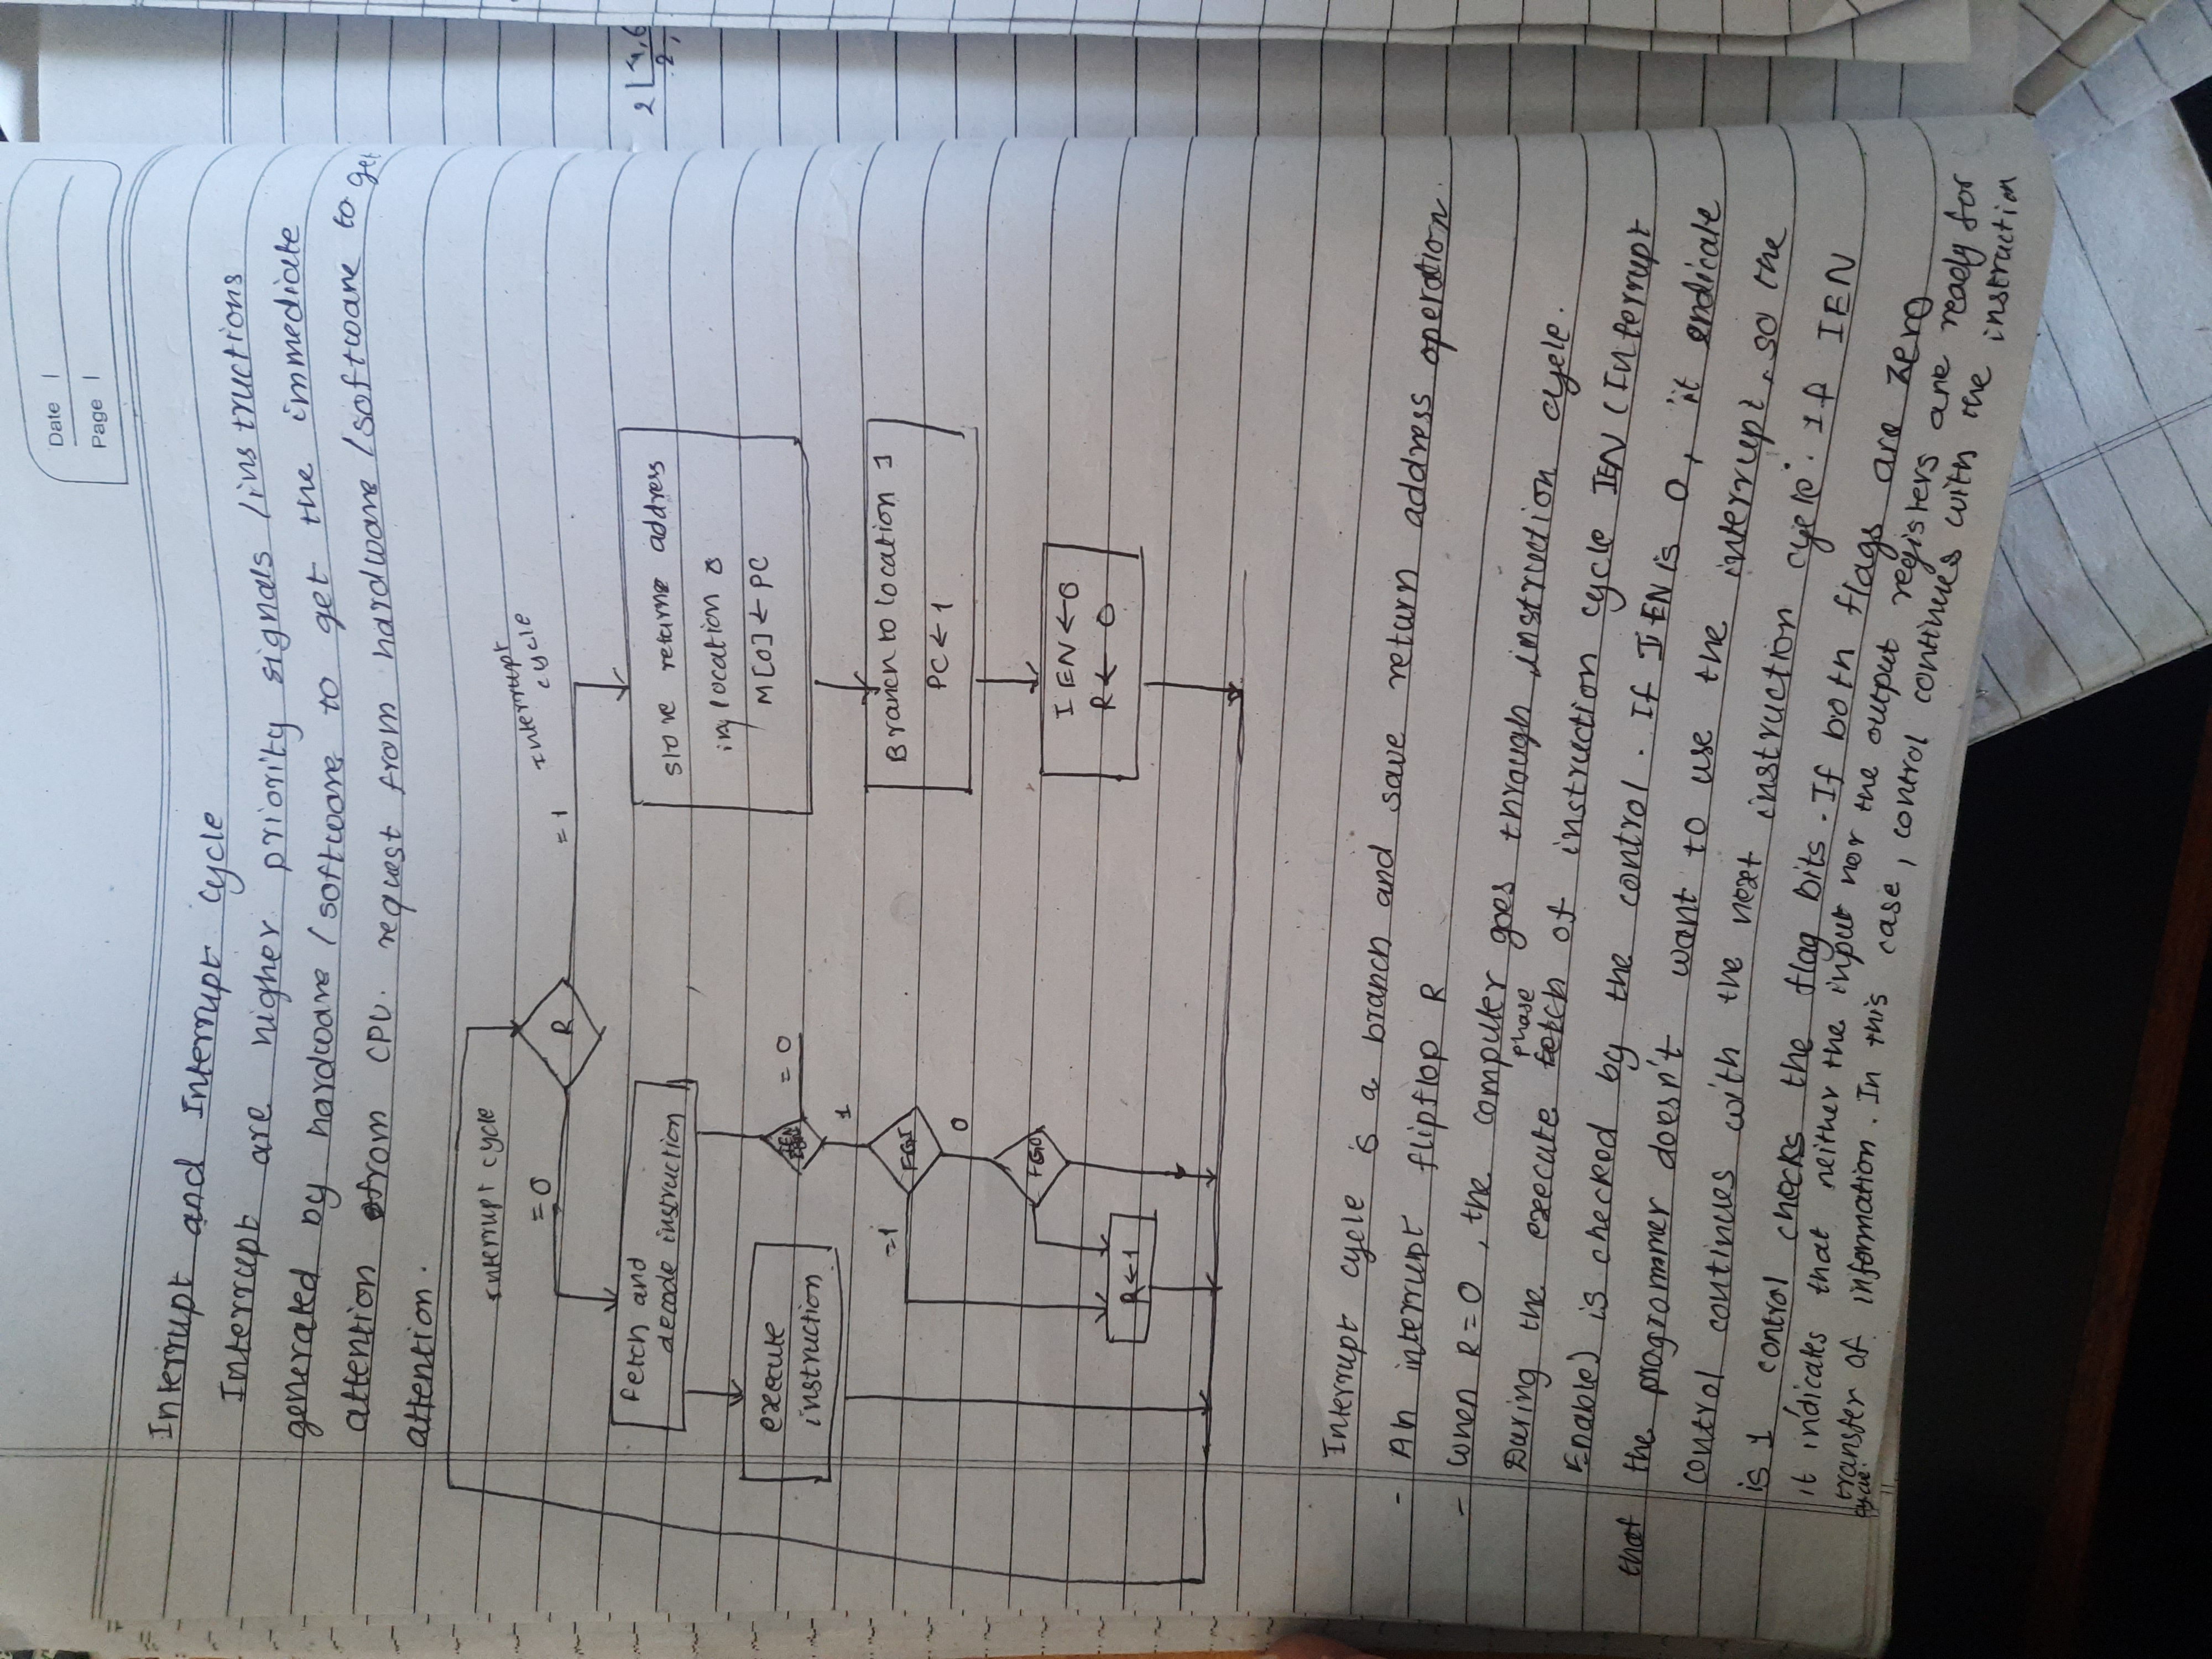 Date
Page
Interrupt and Interrupt cycle
Interrupt are higher priority signals /instructions
generated by hardware / software to get the immediate
attention from CPU. request from hardware / software to get
attention.
Interrupt cycle
=0
R
=1
Interrupt
cycle
Fetch and
decode instruction
Store return address
in location 0
M[0] ← PC
execute
instruction
IEN
= 0
1
=1
FGI
0
Branch to location 1
PC ← 1
FGO
IEN ← 0
R ← 0
R ← 1
2 4, 6
2,
Interrupt cycle is a branch and save return address operation.
- An interrupt flipflop R
- When R = 0, the computer goes through instruction cycle.
During the execute phase of instruction cycle IEN (Interrupt
Enable) is checked by the control. If IEN is 0, it endicate
that the programmer doesn't want to use the interrupt, so the
control continues with the next instruction cycle. If IEN
is 1, control checks the flag bits. If both flags are zero
it indicates that neither the input nor the output registers are ready for
transfer of information. In this case, control continues with the instruction
cycle.